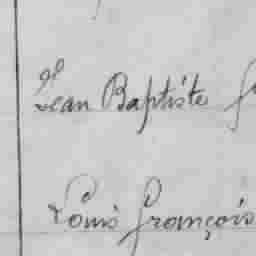 Jean Baptiste
Louis François